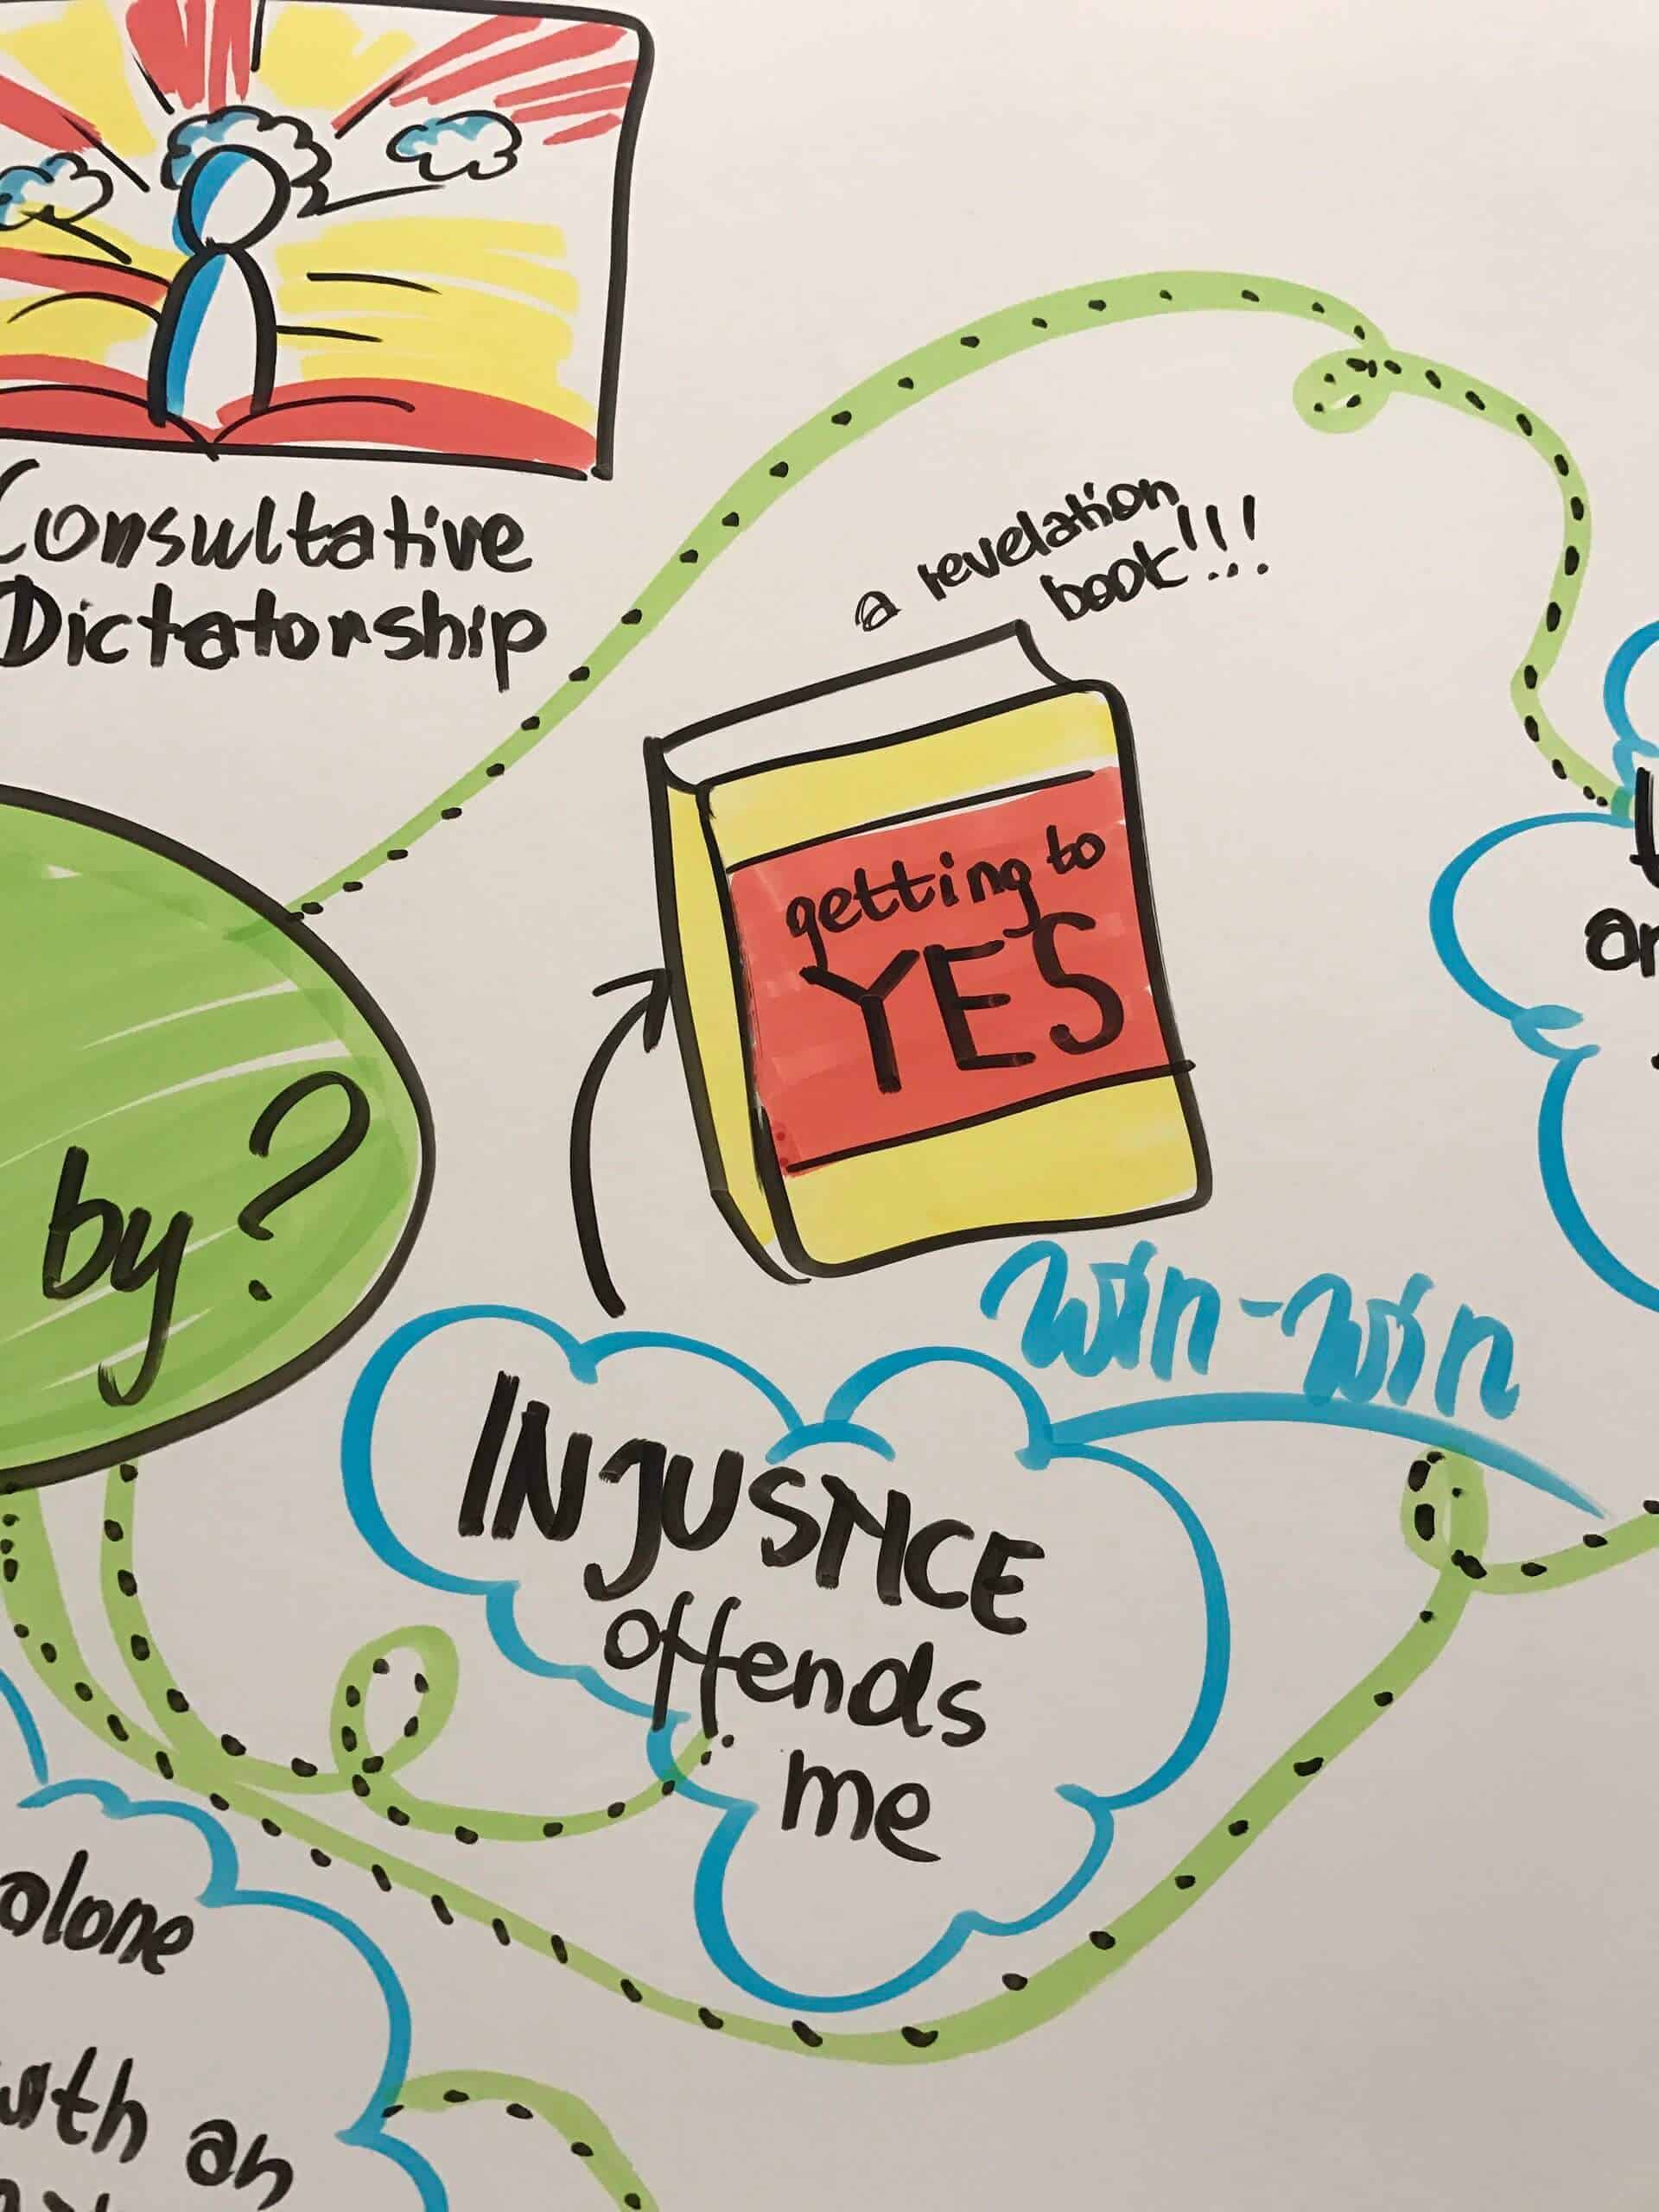 Consultative
Dictatorship
a revelation
book!!!
getting to
YES
by?
win-win
INJUSTICE
offends
me
alone
with an